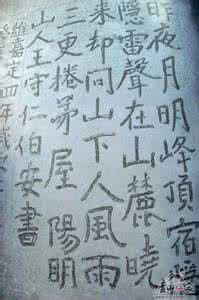 昨夜月明峰頂宿隱
隱雷聲在山麓曉
来却問山下人風雨
三更捲茅屋陽明
山人王守仁伯安書
維嘉定四年歲